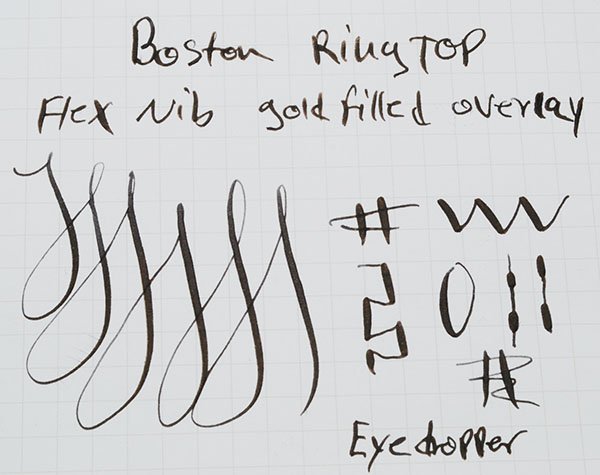 Boston RingTOP
Flex Nib gold filled overlay
#
Eyedropper